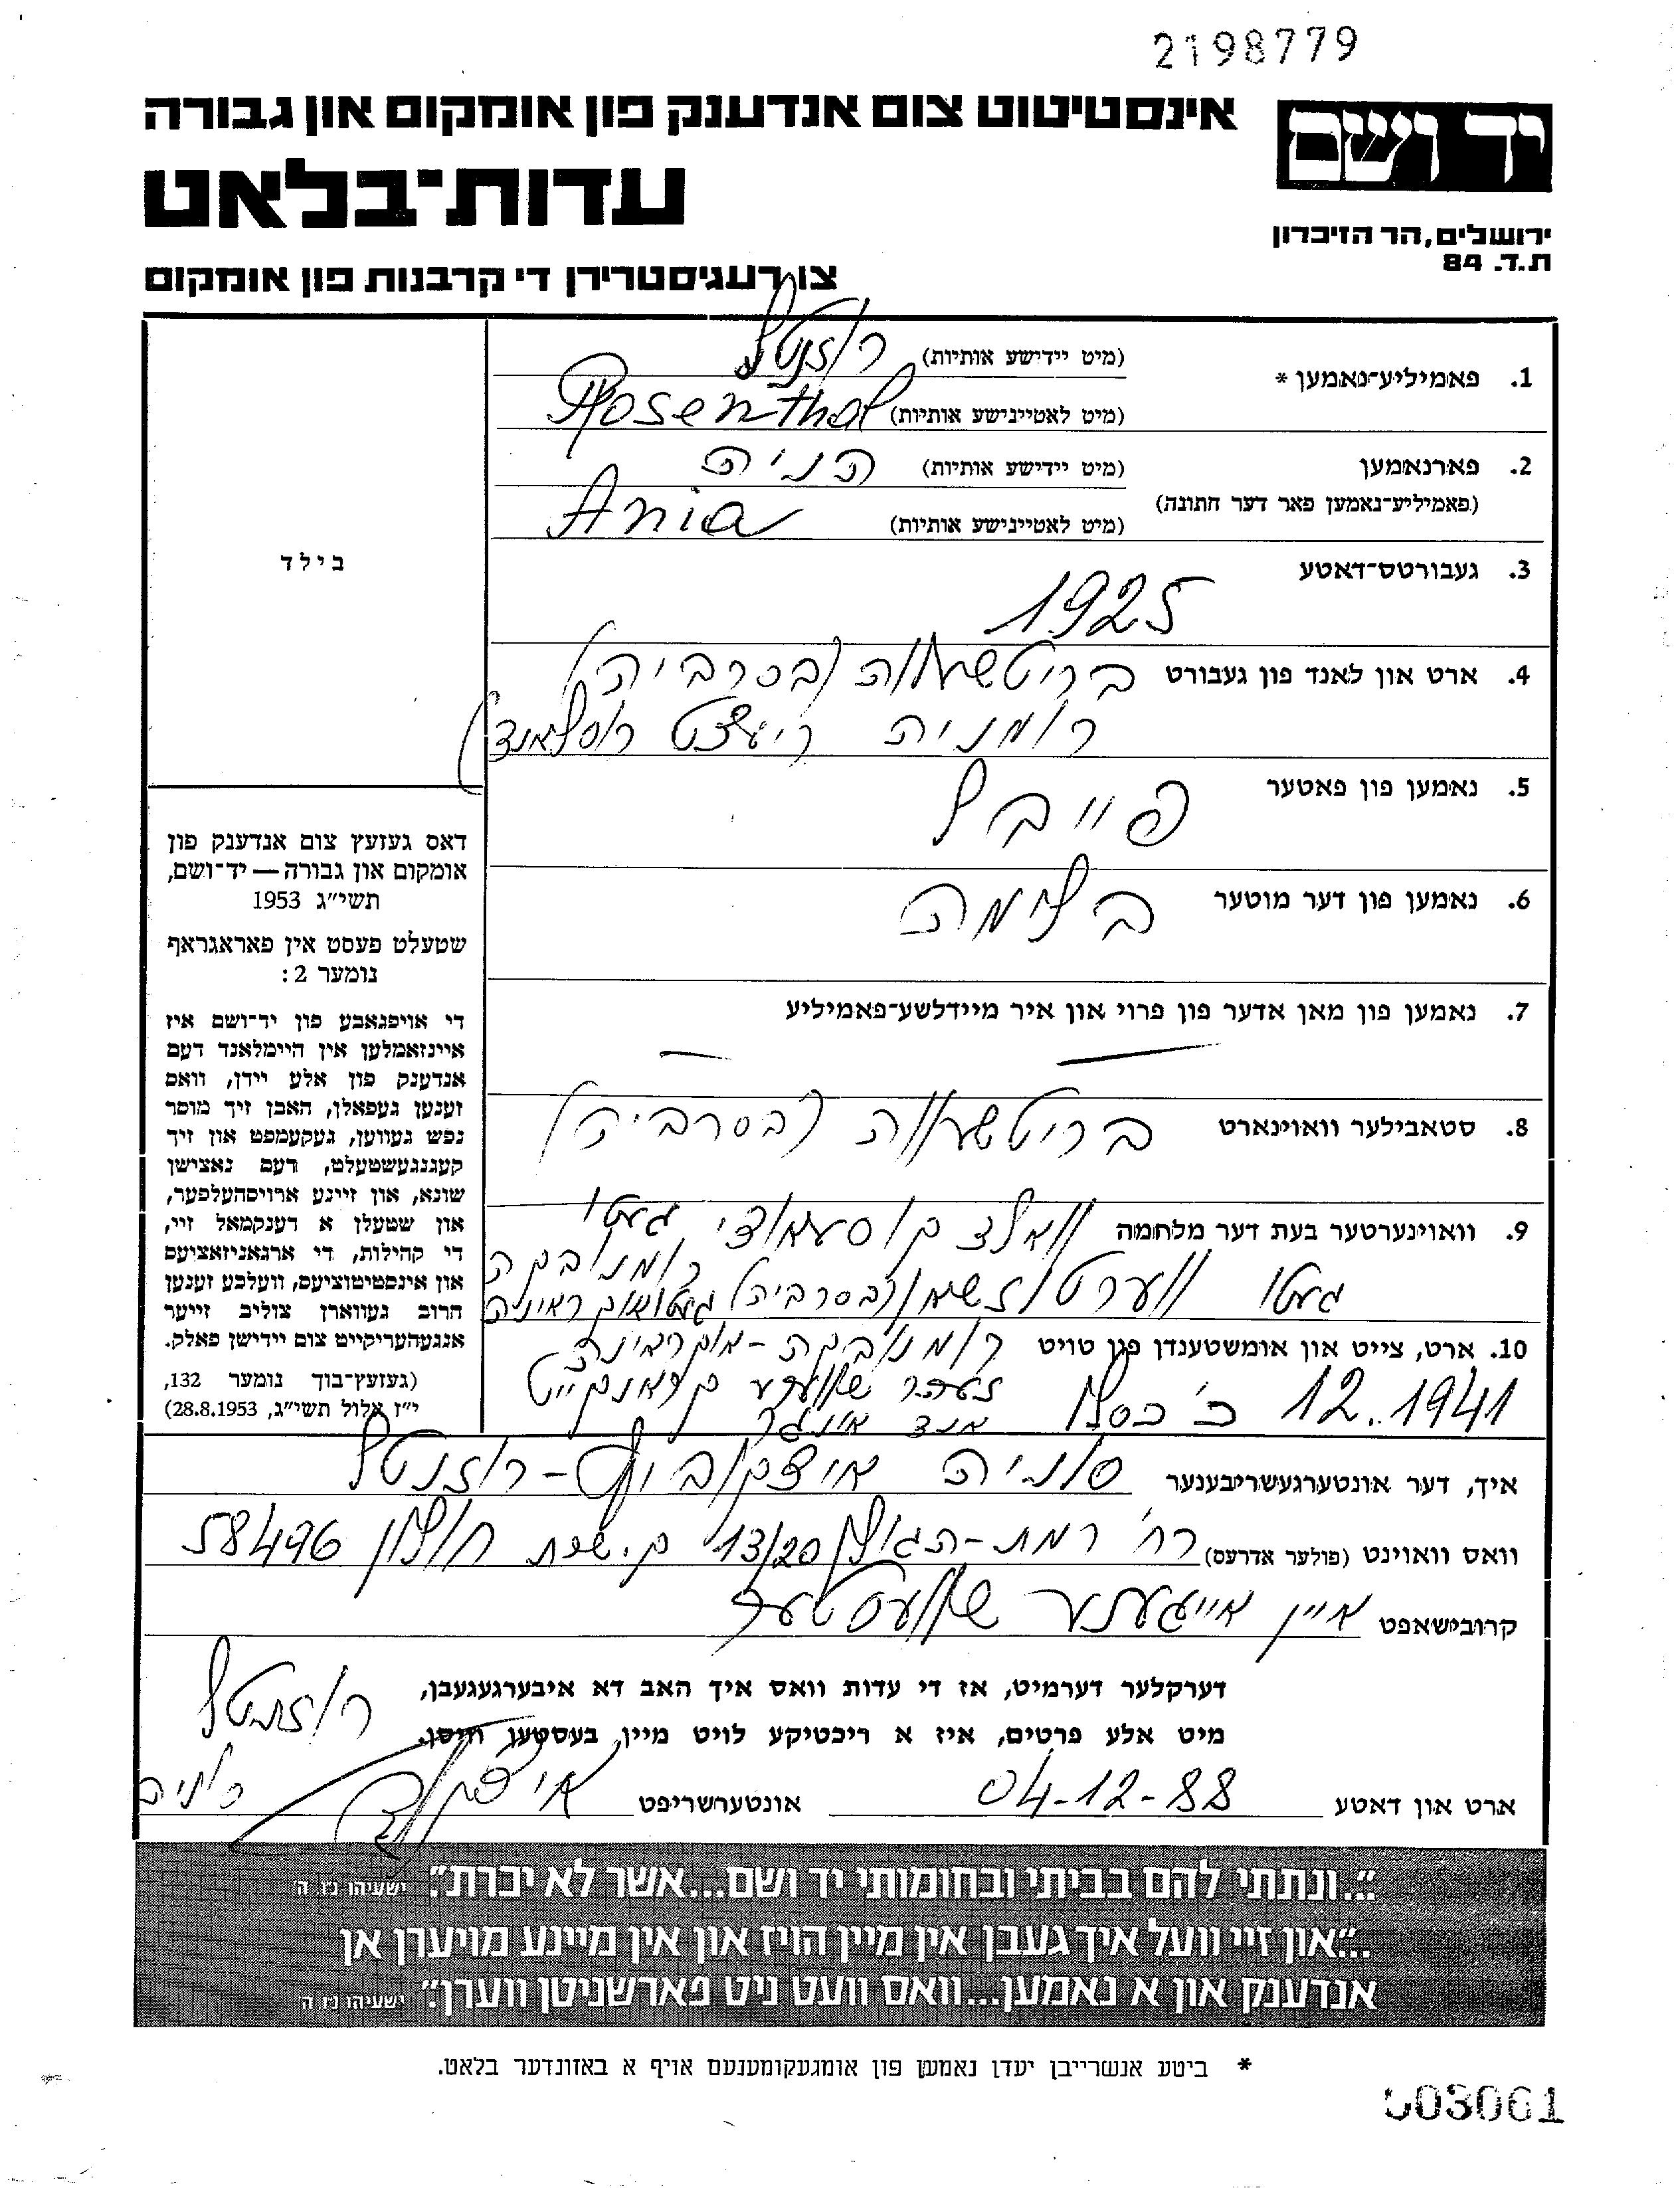 2198779
אינסטיטוט צום אנדענק פון אומקום און גבורה
יד ושם
עדות־בלאט
ירושלים, הר הזיכרון
ת.ד. 84
צו רעגיסטרירן די קרבנות פון אומקום
1. פאמיליע־נאמען *
(מיט יידישע אותיות) רוזנטל
(מיט לאטיינישע אותיות) Rosenthal
2. פארנאמען
(מיט יידישע אותיות) הניה
(פאמיליע־נאמען פאר דער חתונה)
(מיט לאטיינישע אותיות) Ania
3. געבורטס־דאטע
1925
בילד
4. ארט און לאנד פון געבורט בריטשאווה (בסרביה)
רומניה (יעצט רוסלאנד)
5. נאמען פון פאטער
פייבל
6. נאמען פון דער מוטער
בלימה
7. נאמען פון מאן אדער פון פרוי און איר מיידלשע־פאמיליע
— —
8. סטאבילער וואוינארט
בריטשאווה (בסרביה)
9. וואוינערטער בעת דער מלחמה
וואלד קוסעאוצי געטו
רומנובקה
געטו ווערטוזשאן (בסרביה)
10. ארט, צייט און אומשטענדן פון טויט
רומנובקה - אוקראינה
12.1941 כ' כסלו
קראנקייט
און הונגער
דאס געזעץ צום אנדענק פון
אומקום און גבורה — יד־ושם,
תשי״ג 1953
שטעלט פעסט אין פאראגראף
נומער 2:
די אויפגאבע פון יד־ושם איז
איינזאמלען אין היימלאנד דעם
אנדענק פון אלע יידן, וואס
זענען געפאלן, האבן זיך מוסר
נפש געווען, געקעמפט און זיך
קעגנגעשטעלט, דעם נאצישן
שונא, און זיינע ארויסהעלפער,
און שטעלן א דענקמאל זיי,
די קהילות, די ארגאניזאציעס
און אינסטיטוציעס, וועלכע זענען
חרוב געווארן צוליב זייער
אנגעהעריקייט צום יידישן פאלק.
(געזעץ־בוך נומער 132,
י״ז אלול תשי״ג, 28.8.1953)
איך, דער אונטערגעשריבענער סוניה איצקוביץ - רוזנטל
וואס וואוינט (פולער אדרעס) רח' רמת-הגולן 13/20 ק. שרת חולון 58496
קרובישאפט איין אייגענע שוועסטער
דערקלער דערמיט, אז די עדות וואס איך האב דא איבערגעגעבן,
מיט אלע פרטים, איז א ריכטיקע לויט מיין בעסטען וויסן.
רוזנטל
ארט און דאטע 04-12-88 אונטערשריפט איצקוביץ סוניה
"...ונתתי להם בביתי ובחומותי יד ושם...אשר לא יכרת". ישעיהו נ״ו, ה'
..."און זיי וועל איך געבן אין מיין הויז און אין מיינע מויערן אן
אנדענק און א נאמען...וואס וועט ניט פארשניטן ווערן". ישעיהו נ״ו, ה'
* ביטע אנשרייבן יעדן נאמען פון אומגעקומענעם אויף א באזונדער בלאט.
003061